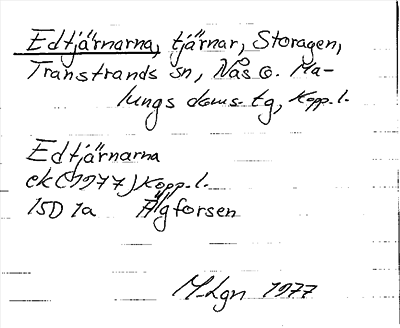 Edtjärnarna, tjärnar, Storagen,
Transtrands sn, Nås o. Ma-
lungs doms. tg, Kopp. l.
Edtjärnarna
ek (1977) Kopp. l.
15D 1a Älgforsen
M-Lgn 1977